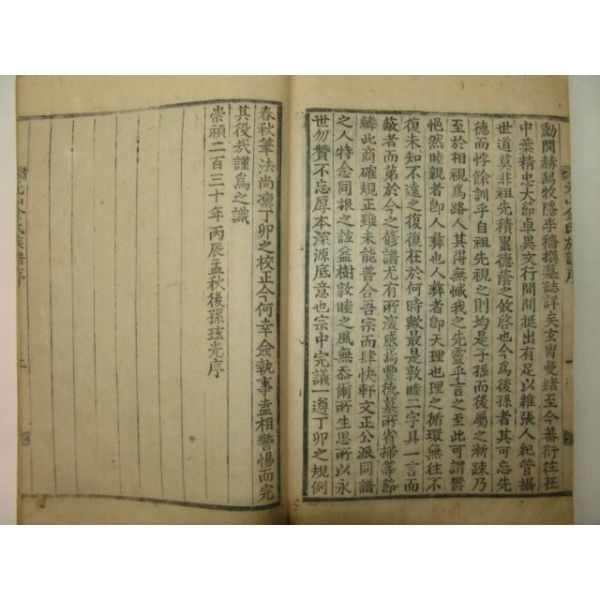 勳閥赫舃牧隱李穡撰墓誌詳矣玄胄曼緖至今蕃衍往在
中葉精忠大節卓異文行間間挺出有足以維張人紀管攝
世道莫非祖先積累德蔭之攸啓也今爲後孫者其可忘先
德而悖餘訓乎自祖先視之則均是子孫而後屬之漸踈乃
至於相視爲路人其得無慽我之先靈乎言之至此可謂鬱
悒然睦親者卽人彛也人彛者卽天理也理之循環無往不
復未知不遠之復復在於何時歟最是敦睦二字具一言而
蔽者而弟於今之修譜尤有所淩感焉豐德墓所省掃等節
緣此商確規正雖未能普合吾宗而肆快軒文正公派同譜
之人特念同根之誼益樹敦睦之風無忝爾所生思所以永
世勿贊不忘厚本深源底意也宗中完議一遵丁卯之規例
春秋筆法尚凛丁卯之校正今何幸僉執事盍相警惕而完
其役哉謹爲之識
崇禎二百三十年丙辰孟秋後孫玹光序